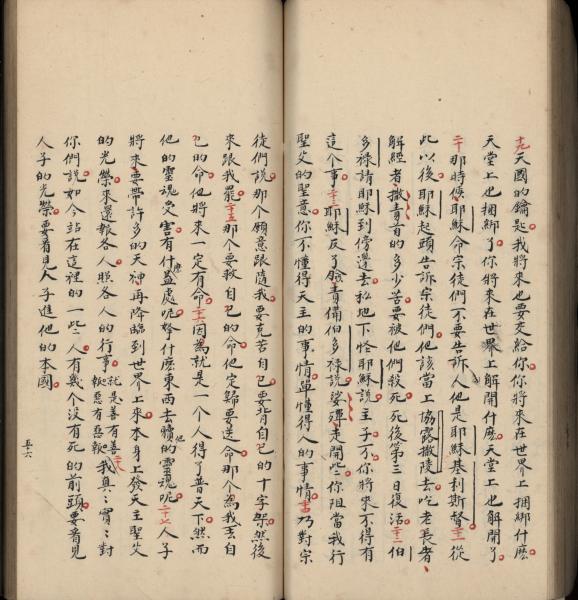 十九天國的鑰匙我將來也要交給你你將來在世界上捆綁什麽
天堂上也捆綁了你將來在世界上解開什麽天堂上也解開了
二十那時候耶穌命宗徒們不要告訴人他是耶穌基利斯督二十一從
此以後耶穌起頭告訴宗徒們他該當上協露撒陵去吃老長者
解經者撒責首的多少苦要被他們殺死死後第三日復活二十二伯
多祿請耶穌到傍邊去私地下怪耶穌說主子不你將來不得有
這个事二十三耶穌反了臉責備伯多祿說娑殫走開些你阻當我行
聖父的聖意你不懂得天主的事情單懂得人的事情二十四乃對宗
徒們說那个願意跟隨我要克苦自己要背自己的十字架然後
來跟我罷二十五那个要救自己的命他定歸要送命那个為我丟自
己的命他將來一定有命二十六因為就是一个人得了普天下然而
他的靈魂受害有什麽益處呢好什麽東西去贖他的靈魂呢二十七人子
將來要帶許多的天神再降臨到世界上來本身上發天主聖父
的光榮來還報各人照各人的行事就是善有善報惡有惡報二十八我真真實實對
你們說如今站在這裡的一些人有幾个沒有死的前頭要看見
人子的光榮要看見人子進他的本國
五六